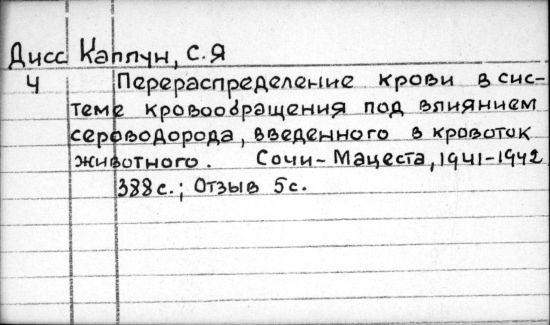 Дисс Каплун, С.Я
4 Перераспределение крови в сис-
теме кровообращения под влиянием
сероводорода, введенного в кровоток
животного. Сочи-Мацеста, 1941-1942
388с.; Отзыв 5с.